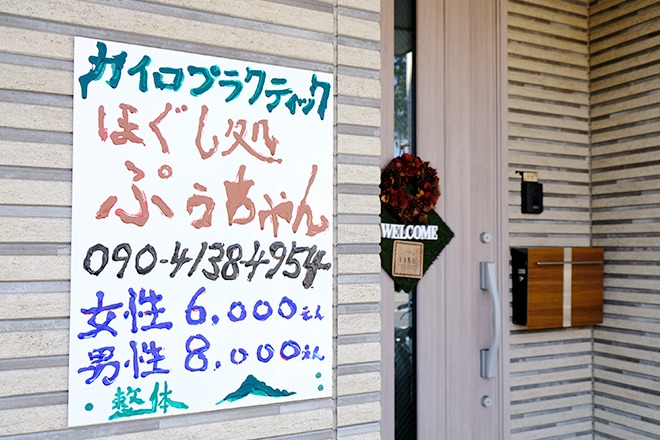 カイロプラクティック
ほぐし処
ぷぅちゃん
090-41384954
女性 6.000えん
男性 8.000えん
整体
WELCOME